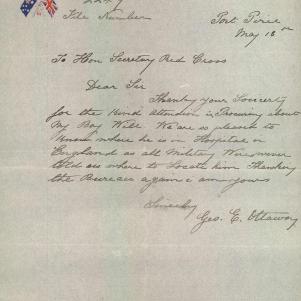 File Number
Port Pirie
May 18
To Hon Secretary Red Cross
Dear Sir
Thanking your Sincerely
for the kind attention in Procuring about
My Boy Will We are so pleased to
know where he is in Hospital in
England as all Military Wires never
told us where to locate him Thanking
the Bureau again i am yours
Sincerly
Geo. E. Ottaway